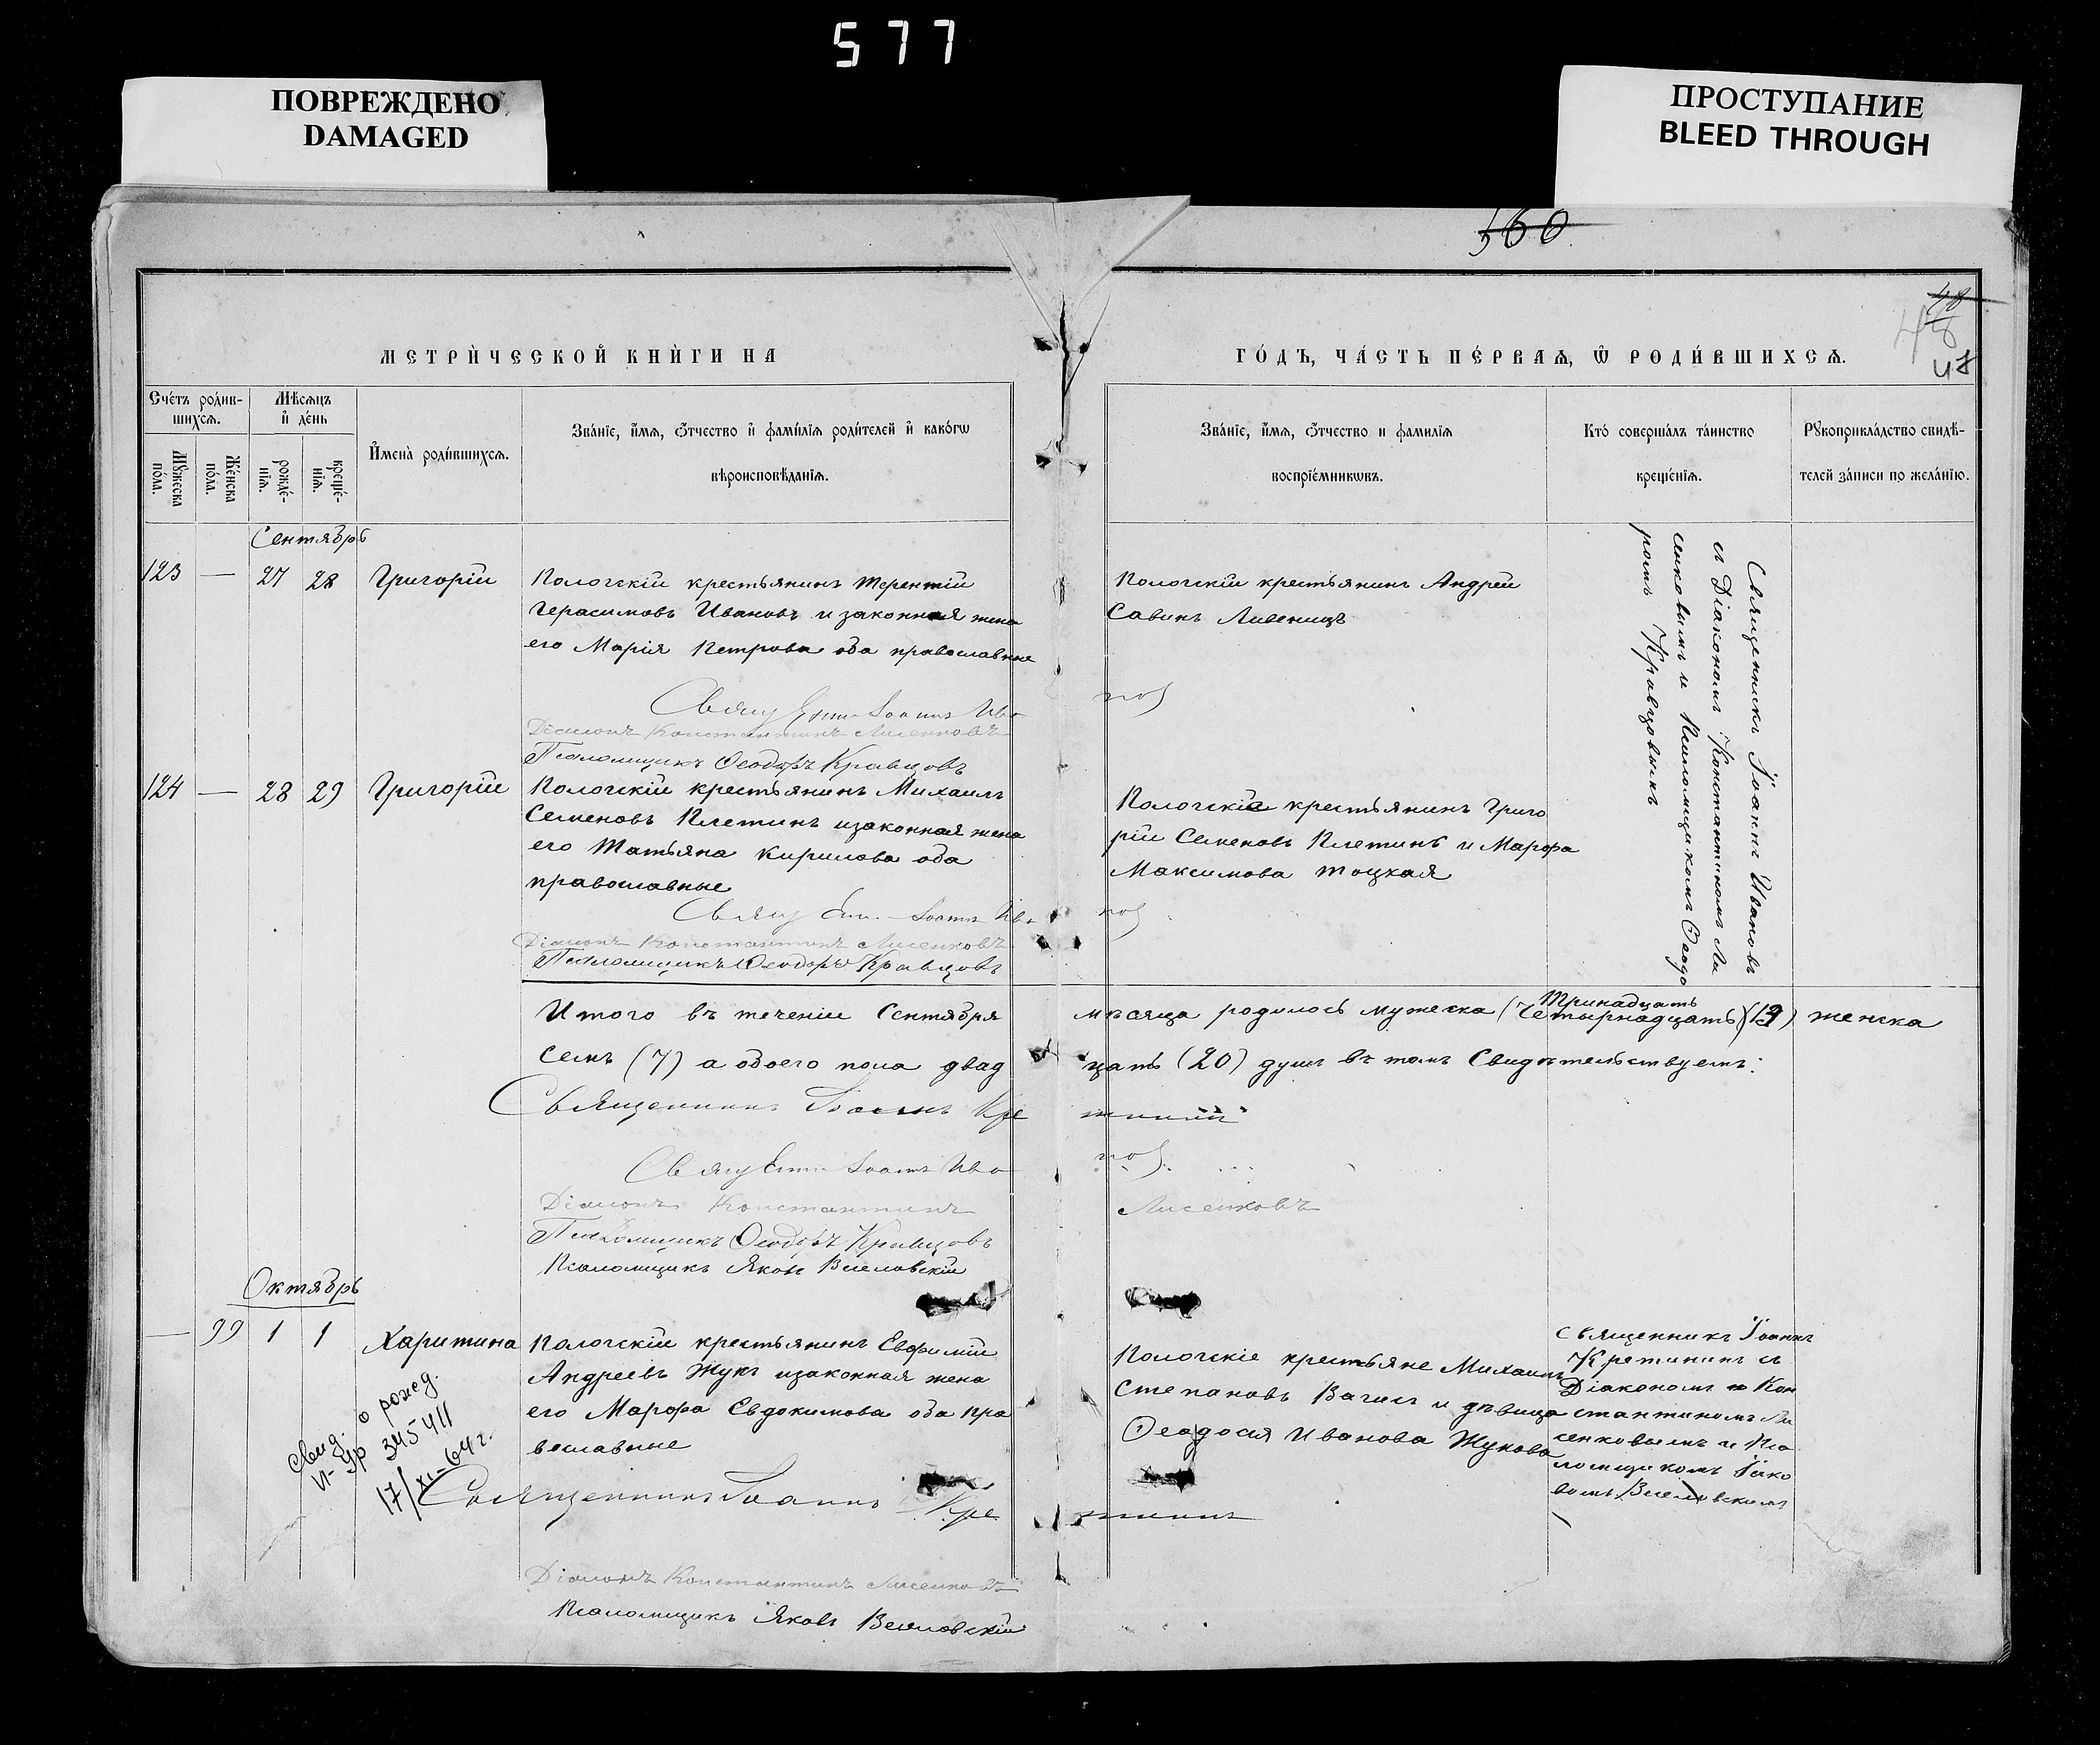 577
ПОВРЕЖДЕНО
DAMAGED
ПРОСТУПАНИЕ
BLEED THROUGH
560
48
48
МЕТРИ́ЧЕСКОЙ КНИ́ГИ НА
ГО́ДЪ, ЧА́СТЬ ПЕ́РВАѦ, Ѿ РОДИ́ВШИХСѦ.
Сче́тъ роди́в-
шихсѧ.
Мѣ́сѧцъ
и҆ де́нь
Мꙋ́жеска
по́ла.
Же́нска
по́ла.
рожде́-
нїѧ.
креще́-
нїѧ.
И҆мена̀ роди́вшихсѧ.
Зва́нїе, и҆́мѧ, ѻ҆́тчество и҆ фами́лїѧ роди́телей и҆ како́гѡ
вѣроисповѣ́данїѧ.
Зва́нїе, и҆́мѧ, ѻ҆́тчество и фамилїѧ
воспрїе́мникѡвъ.
Кто̀ соверша́лъ та́инство
креще́нїѧ.
Рꙋкоприкла́дство свидѣ́-
телей за́писи по жела́нїю.
Сентябрь
123 — 27 28 Григорій
Пологскій крестьянинъ Терентій
Герасимовъ Ивановъ и законная жена
его Марія Петрова оба православные
Пологскій крестьянинъ Андрей
Савинъ
Священникъ Іоаннъ Ивановъ
съ Діакономъ Константиномъ Ли
сенковымъ и Псаломщикомъ Ѳеодо
ромъ Кравцовымъ
Свящ Іоаннъ Ива
нов
Діаконъ Константинъ Лисенковъ
Псаломщикъ Ѳеодоръ Кравцовъ
124 — 28 29 Григорій
Пологскій крестьянинъ Михаилъ
Семеновъ Плетинъ и законная жена
его Татьяна Кирилова оба
православные
Пологскіе крестьянинъ Григо
рій Семеновъ Плетинъ и Марфа
Максимова Тоцкая
Свящ Іоаннъ Ива
нов
Діаконъ Константинъ Лисенковъ
Псаломщикъ Ѳеодоръ Кравцовъ
Итого въ теченіи Сентября
мѣсяца родилось мужеска (Четырнадцать) (13) женска
Тринадцать
семь (7) а обоего пола двад
цать (20) душъ въ томъ Свидѣтельствуемъ:
Священникъ Іоаннъ Кре
Свящ Іоаннъ Ива
нов
Діаконъ Константинъ
Лисенковъ
Псаломщикъ Ѳеодоръ Кравцовъ
Псаломщикъ Яковъ Веселовскій
Октябрь
— 99 1 1 Харитина
Пологскій крестьянинъ Евфимій
Андреевъ Жукъ и законная жена
его Марфа Евдокимова оба пра
вославные
Пологскіе крестьяне Михаилъ
Степановъ Вагилъ и дѣвица
Ѳеодосія Иванова Жукова
Священникъ Іоаннъ
Кретининъ съ
Діакономъ Кон
стантиномъ Ли
сенковымъ и Пса
ломщикомъ Іако
вомъ Веселовскимъ
свид. о рожд.
VI-УР 345411
17/XI-64 г.
Священникъ Іоаннъ Кре
тининъ
Діаконъ Константинъ Лисенковъ
Псаломщикъ Яковъ Веселовскій